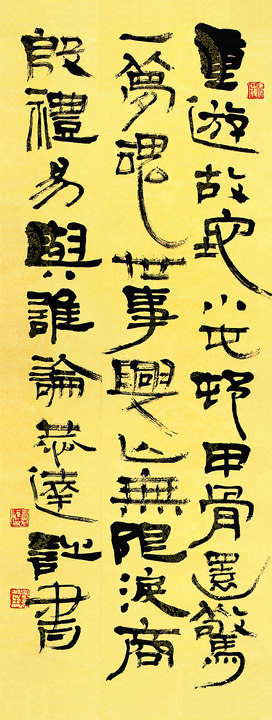 重遊故小屯邨甲骨還驚
一夢魂世事興亡無限淚商
殷禮易與誰論恭達詩書